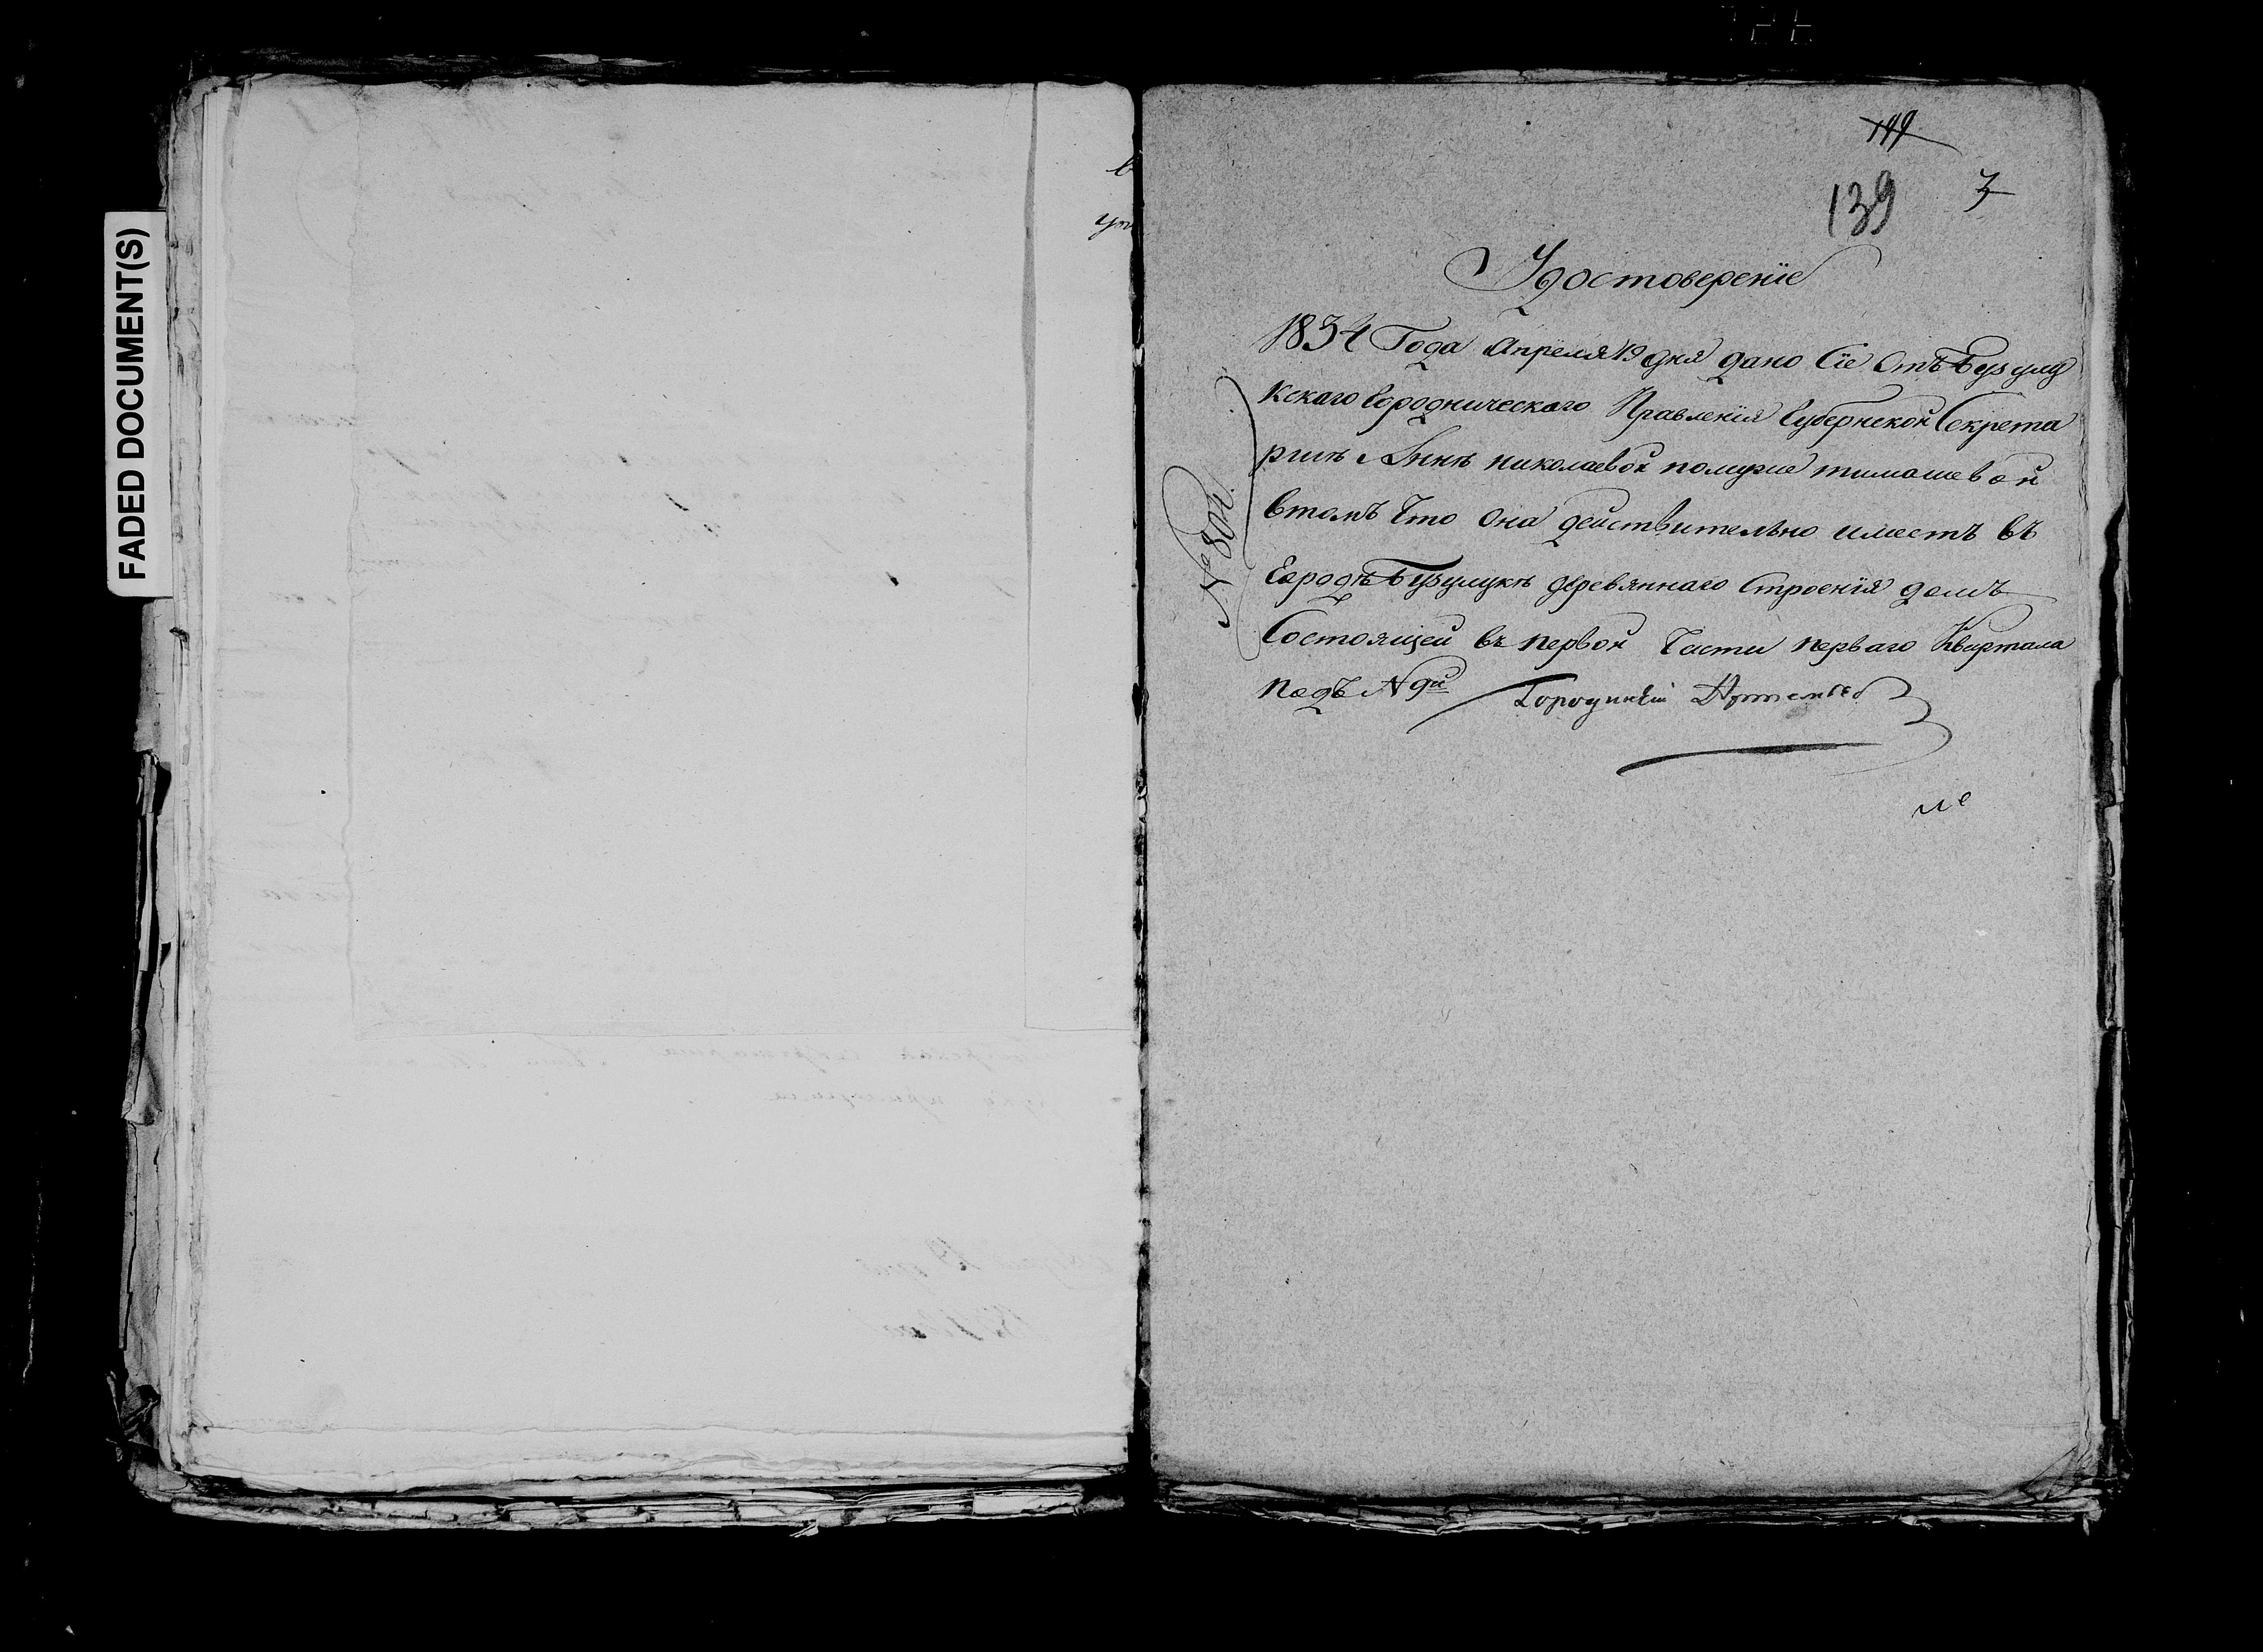 FADED DOCUMENT(S)
149
139
3
Удостоверенiе
1834 Года апреля 19 дня дано Сiе Отъ Бузулу
кскаго городническаго Правленiя Губернской Секрета
ршѣ Аннѣ николаевой помужѣ тимашевой
втомъ Что Она действительно имеетъ въ
Городѣ Бузулукѣ деревяннаго Строенiя домъ
Состоящей въ первой Части перваго Квартала
подъ N 9й
Городничiй Артемьев
№ 804.